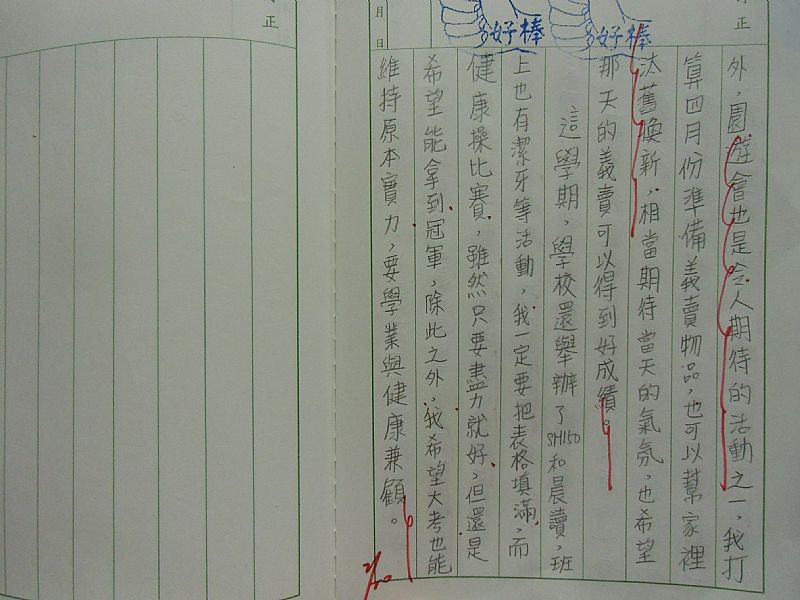 外，園遊會也是令人期待的活動之一，我打
算四月份準備義賣物品，也可以幫家裡
汰舊換新，相當期待當天的氣氛，也希望
那天的義賣可以得到好成績。
這學期，學校還舉辦了SH150和晨讀，班
上也有潔牙等活動，我一定要把表格填滿，而
健康操比賽，雖然只要盡力就好，但還是
希望能拿到冠軍，除此之外，我希望大考也能
維持原本實力，要學業與健康兼顧。
正
好棒
好棒
月
日
正